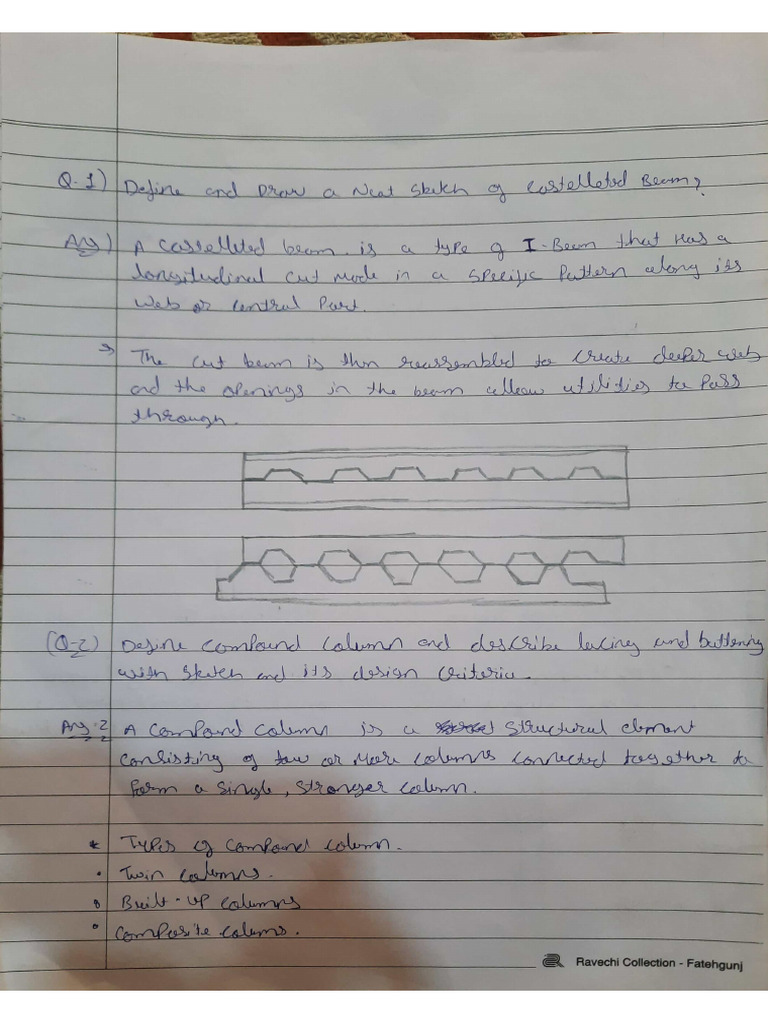 Q.1) Define and Draw a Neat Sketch of Castelleted Beam?
Ans) A Castelleted beam is a type of I-Beam that Has a
longitudinal cut made in a specific pattern along its
web or central Part.
→ The cut beam is then reassembled to create deeper web
and the openings in the beam allow utilities to Pass
through.
(Q-2) Define compound column and describe lacing and buttening
with sketch and its design criteria.
Ans.2 A compound column is a structural element
consisting of tow or More columns connected together to
form a single, stronger column.
* Types of compound column.
• Twin columns.
• Built-up columns
• Composite colums.
Ravechi Collection - Fatehgunj